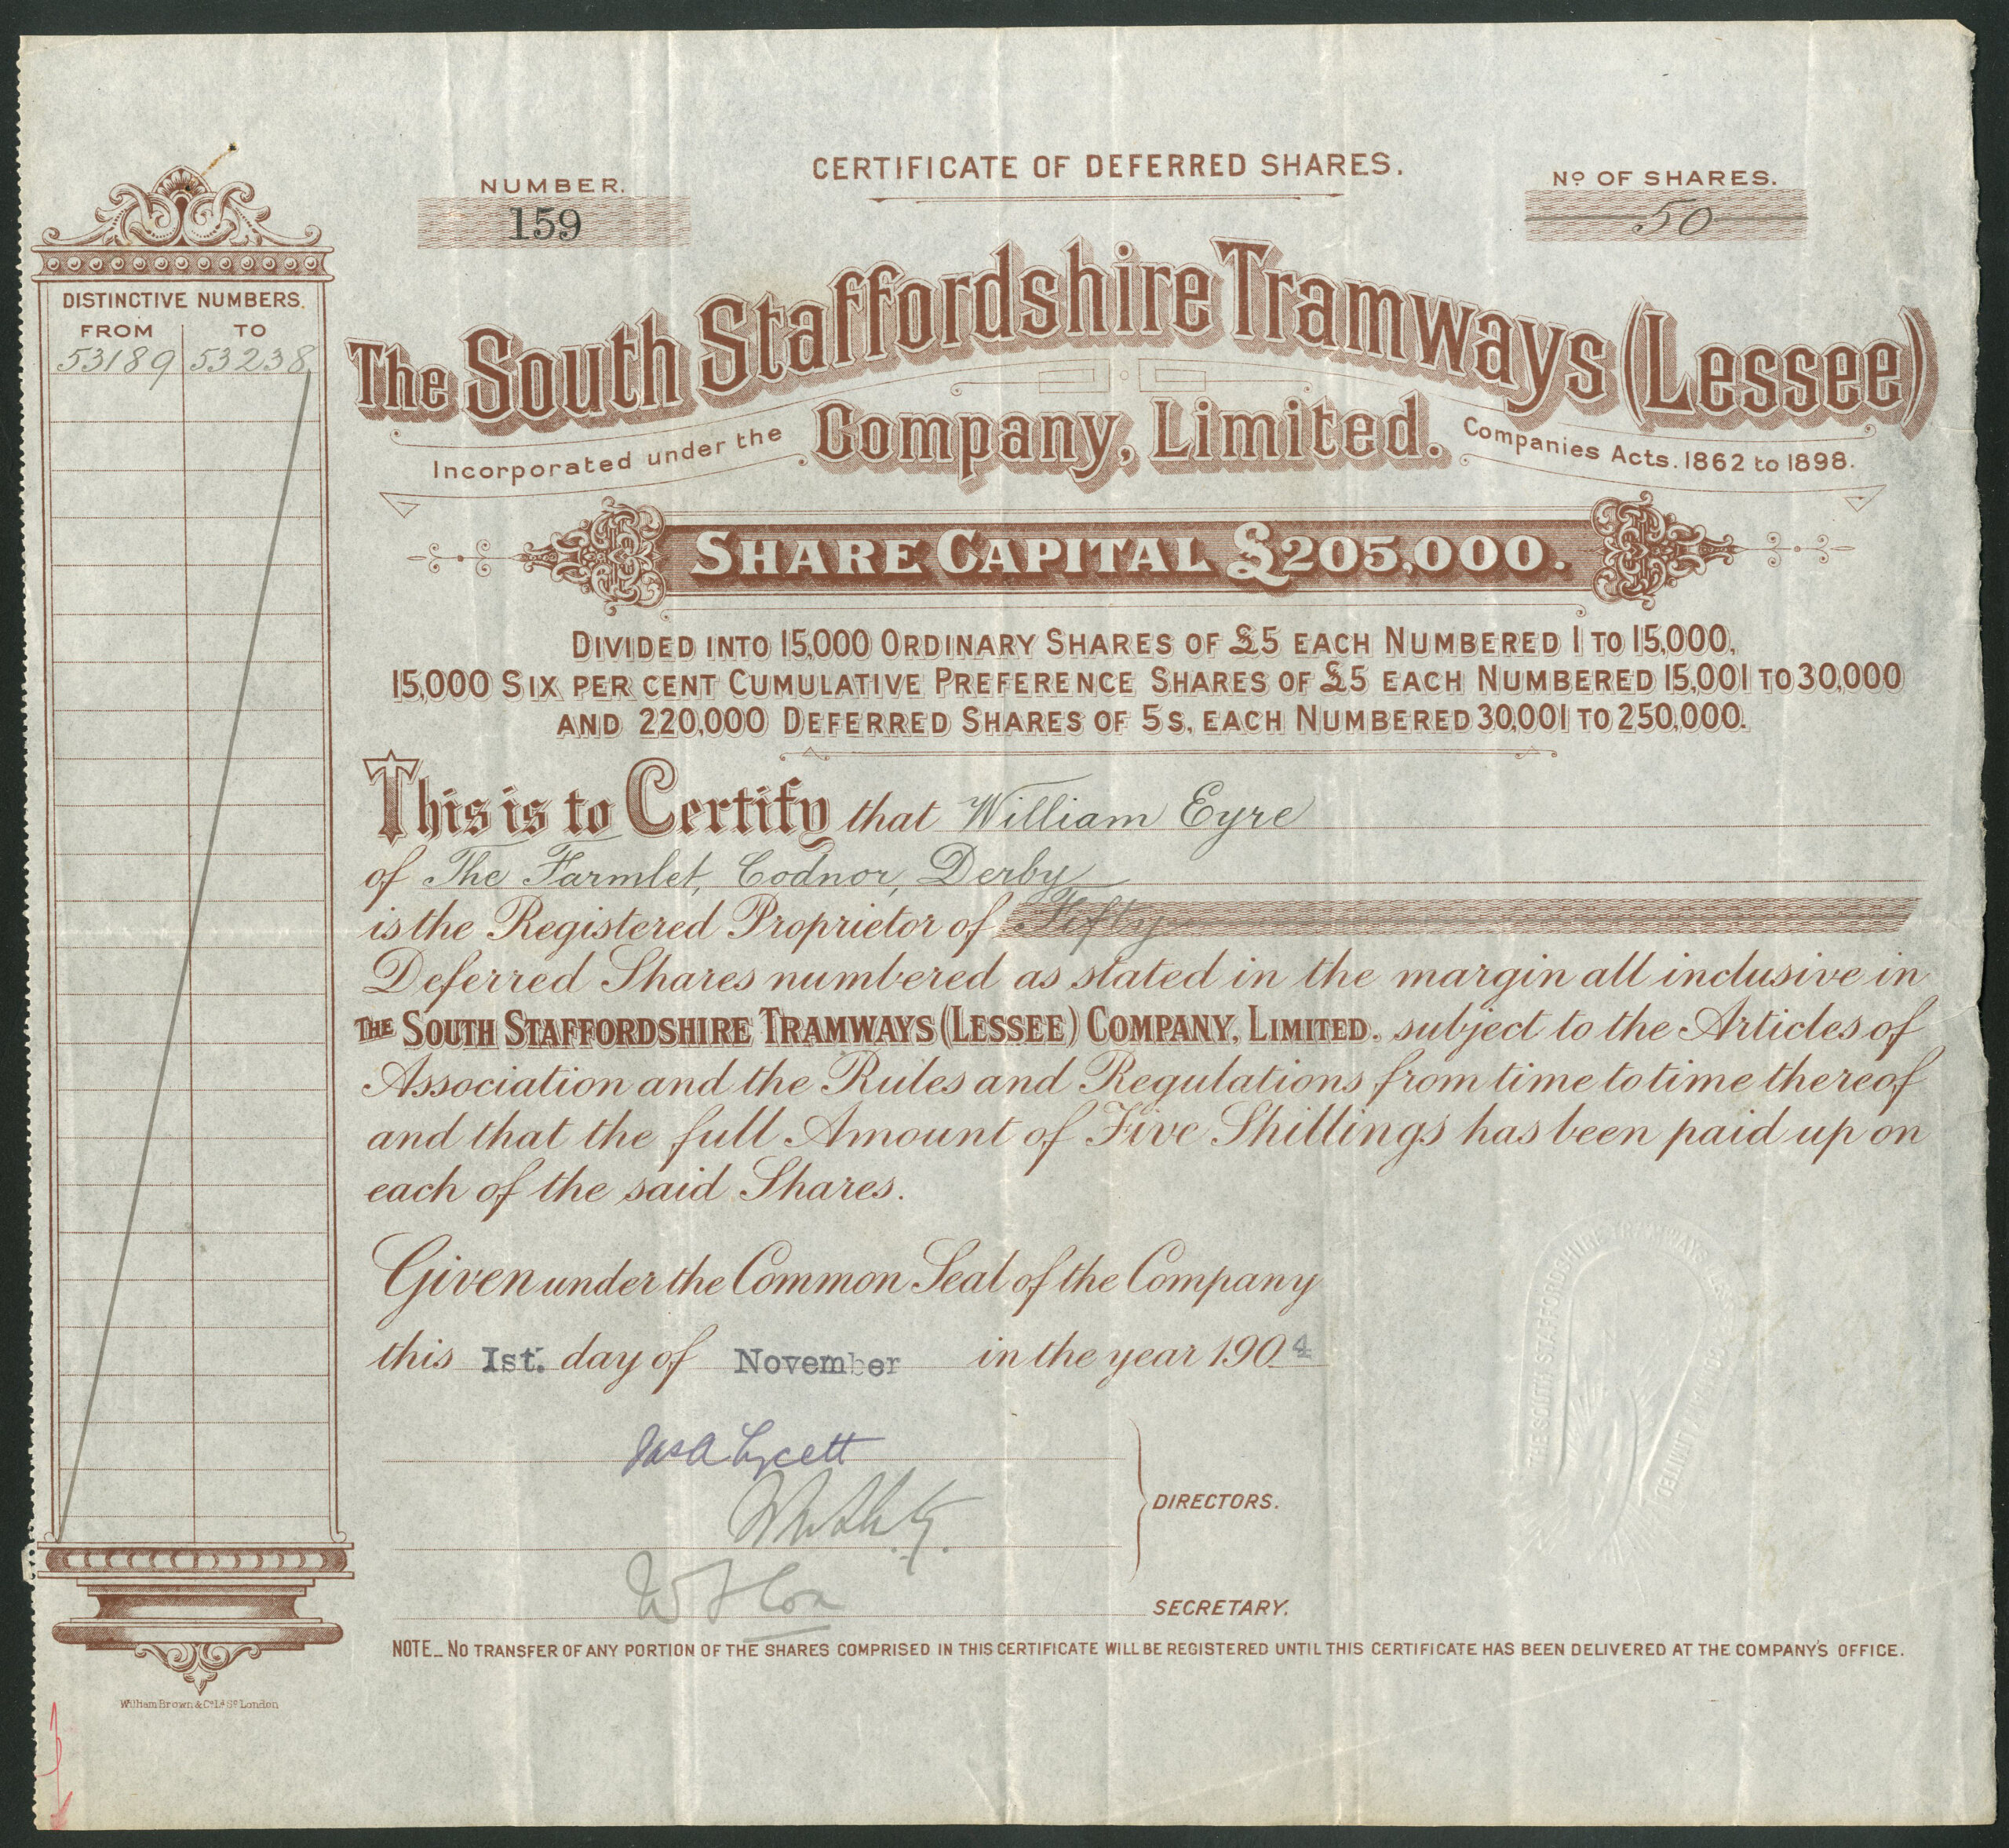 CERTIFICATE OF DEFERRED SHARES.
NUMBER.
159
Nº OF SHARES.
50
DISTINCTIVE NUMBERS.
FROM TO
53189 53238
The South Staffordshire Tramways (Lessee)
Company, Limited.
Incorporated under the Companies Acts. 1862 to 1898.
SHARE CAPITAL £205,000.
DIVIDED INTO 15,000 ORDINARY SHARES OF £5 EACH NUMBERED 1 TO 15,000,
15,000 SIX PER CENT CUMULATIVE PREFERENCE SHARES OF £5 EACH NUMBERED 15,001 TO 30,000
AND 220,000 DEFERRED SHARES OF 5s, EACH NUMBERED 30,001 TO 250,000.
This is to Certify that William Eyre
of The Farmlet, Codnor, Derby
is the Registered Proprietor of Fifty
Deferred Shares numbered as stated in the margin all inclusive in
THE SOUTH STAFFORDSHIRE TRAMWAYS (LESSEE) COMPANY, LIMITED. subject to the Articles of
Association and the Rules and Regulations from time to time thereof
and that the full Amount of Five Shillings has been paid up on
each of the said Shares.
Given under the Common Seal of the Company
this 1st. day of November in the year 1904
Jas A Lycett
DIRECTORS.
W J Cox
SECRETARY.
NOTE_ NO TRANSFER OF ANY PORTION OF THE SHARES COMPRISED IN THIS CERTIFICATE WILL BE REGISTERED UNTIL THIS CERTIFICATE HAS BEEN DELIVERED AT THE COMPANY'S OFFICE.
William Brown & Co Ld Sc London
THE SOUTH STAFFORDSHIRE TRAMWAYS (LESSEE) COMPANY LIMITED